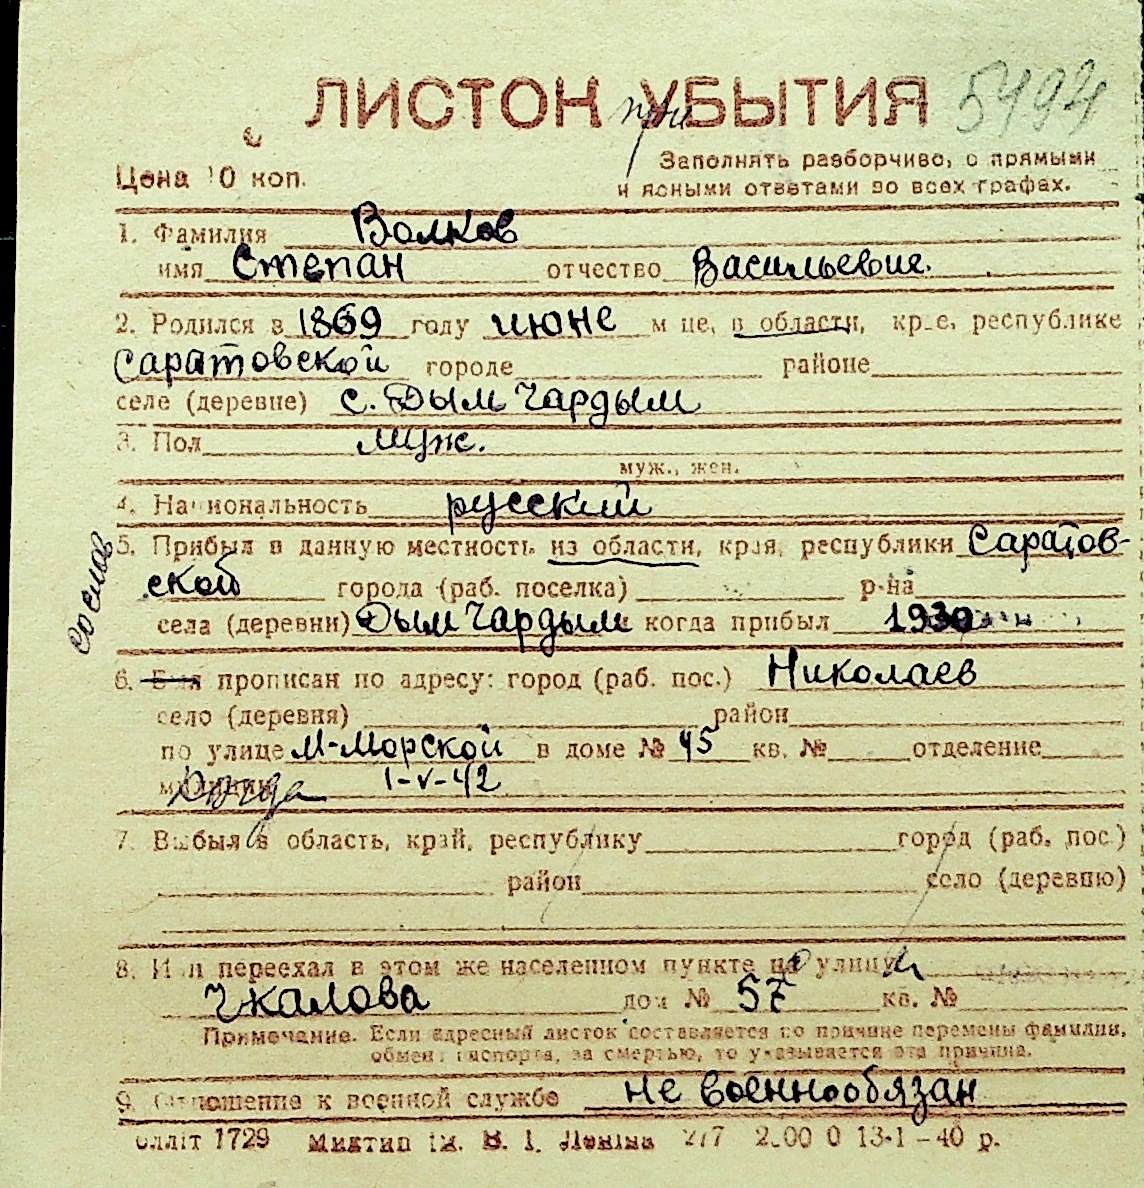 ЛИСТОН УБЫТИЯ
при
5494
Цена 10 коп.
Заполнять разборчиво, с прямыми
и ясными ответами во всех графах.
1. Фамилия Волков
имя Степан отчество Васильевич.
2. Родился в 1869 году июне м це, в области, кр.е, республике
Саратовской городе районе
селе (деревне) с. Дым Чардым
3. Пол муж.
муж., жен.
4. Национальность русский
5. Прибыл в данную местность из области, края, республики Саратов-
ской города (раб. поселка) р-на
села (деревни) Дым Чардым когда прибыл 1930
со слов
6. Был прописан по адресу: город (раб. пос.) Николаев
село (деревня) район
по улице М-Морской в доме № 45 кв. № отделение
милиции 1-V-42
7. Выбыл в область, край, республику город (раб. пос.)
район село (деревню)
8. Или переехал в этом же населенном пункте на улицу
Чкалова дом № 57 кв. №
Примечание. Если адресный листок составляется по причине перемены фамилии,
обмена паспорта, за смертью, то указывается эта причина.
9. Отношение к военной службе не военнообязан
Оллiт 1729 Миктип iм. В. I. Ленiна 277 13-1-40 р.